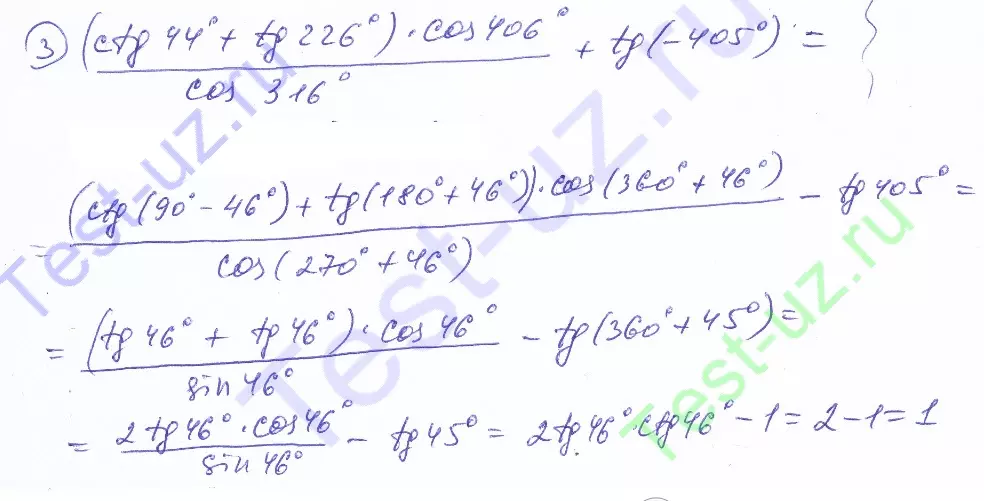 3) ((ctg 44° + tg 226°) · cos 406°) / (cos 316°) + tg(-405°) =
= ((ctg(90° - 46°) + tg(180° + 46°)) · cos(360° + 46°)) / (cos(270° + 46°)) - tg 405° =
= ((tg 46° + tg 46°) · cos 46°) / (sin 46°) - tg(360° + 45°) =
= (2 tg 46° · cos 46°) / (sin 46°) - tg 45° = 2 tg 46° · ctg 46° - 1 = 2 - 1 = 1
Test-uz.ru
Test-uz.ru
Test-uz.ru